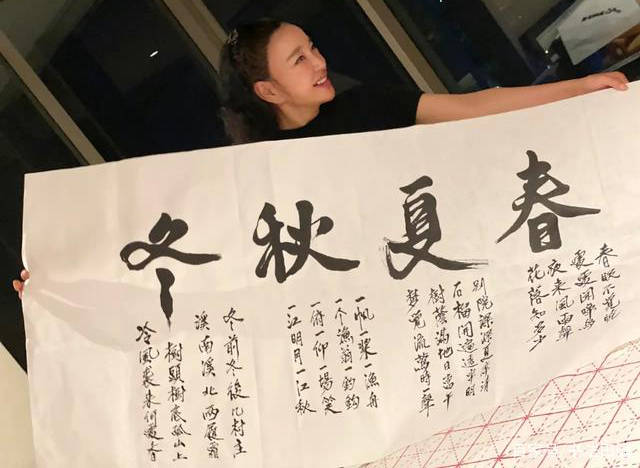 春夏秋冬
春眠不覺曉
處處聞啼鳥
夜来風雨聲
花落知多少
別院深深夏簟清
石榴開遍透簾明
樹蔭滿地日當午
夢覺流鶯時一聲
一帆一槳一漁舟
一个漁翁一釣鈎
一俯一仰一場笑
一江明月一江秋
冬前冬後几村庄
溪南溪北兩履霜
樹頭樹底孤山上
冷風襲来何處香